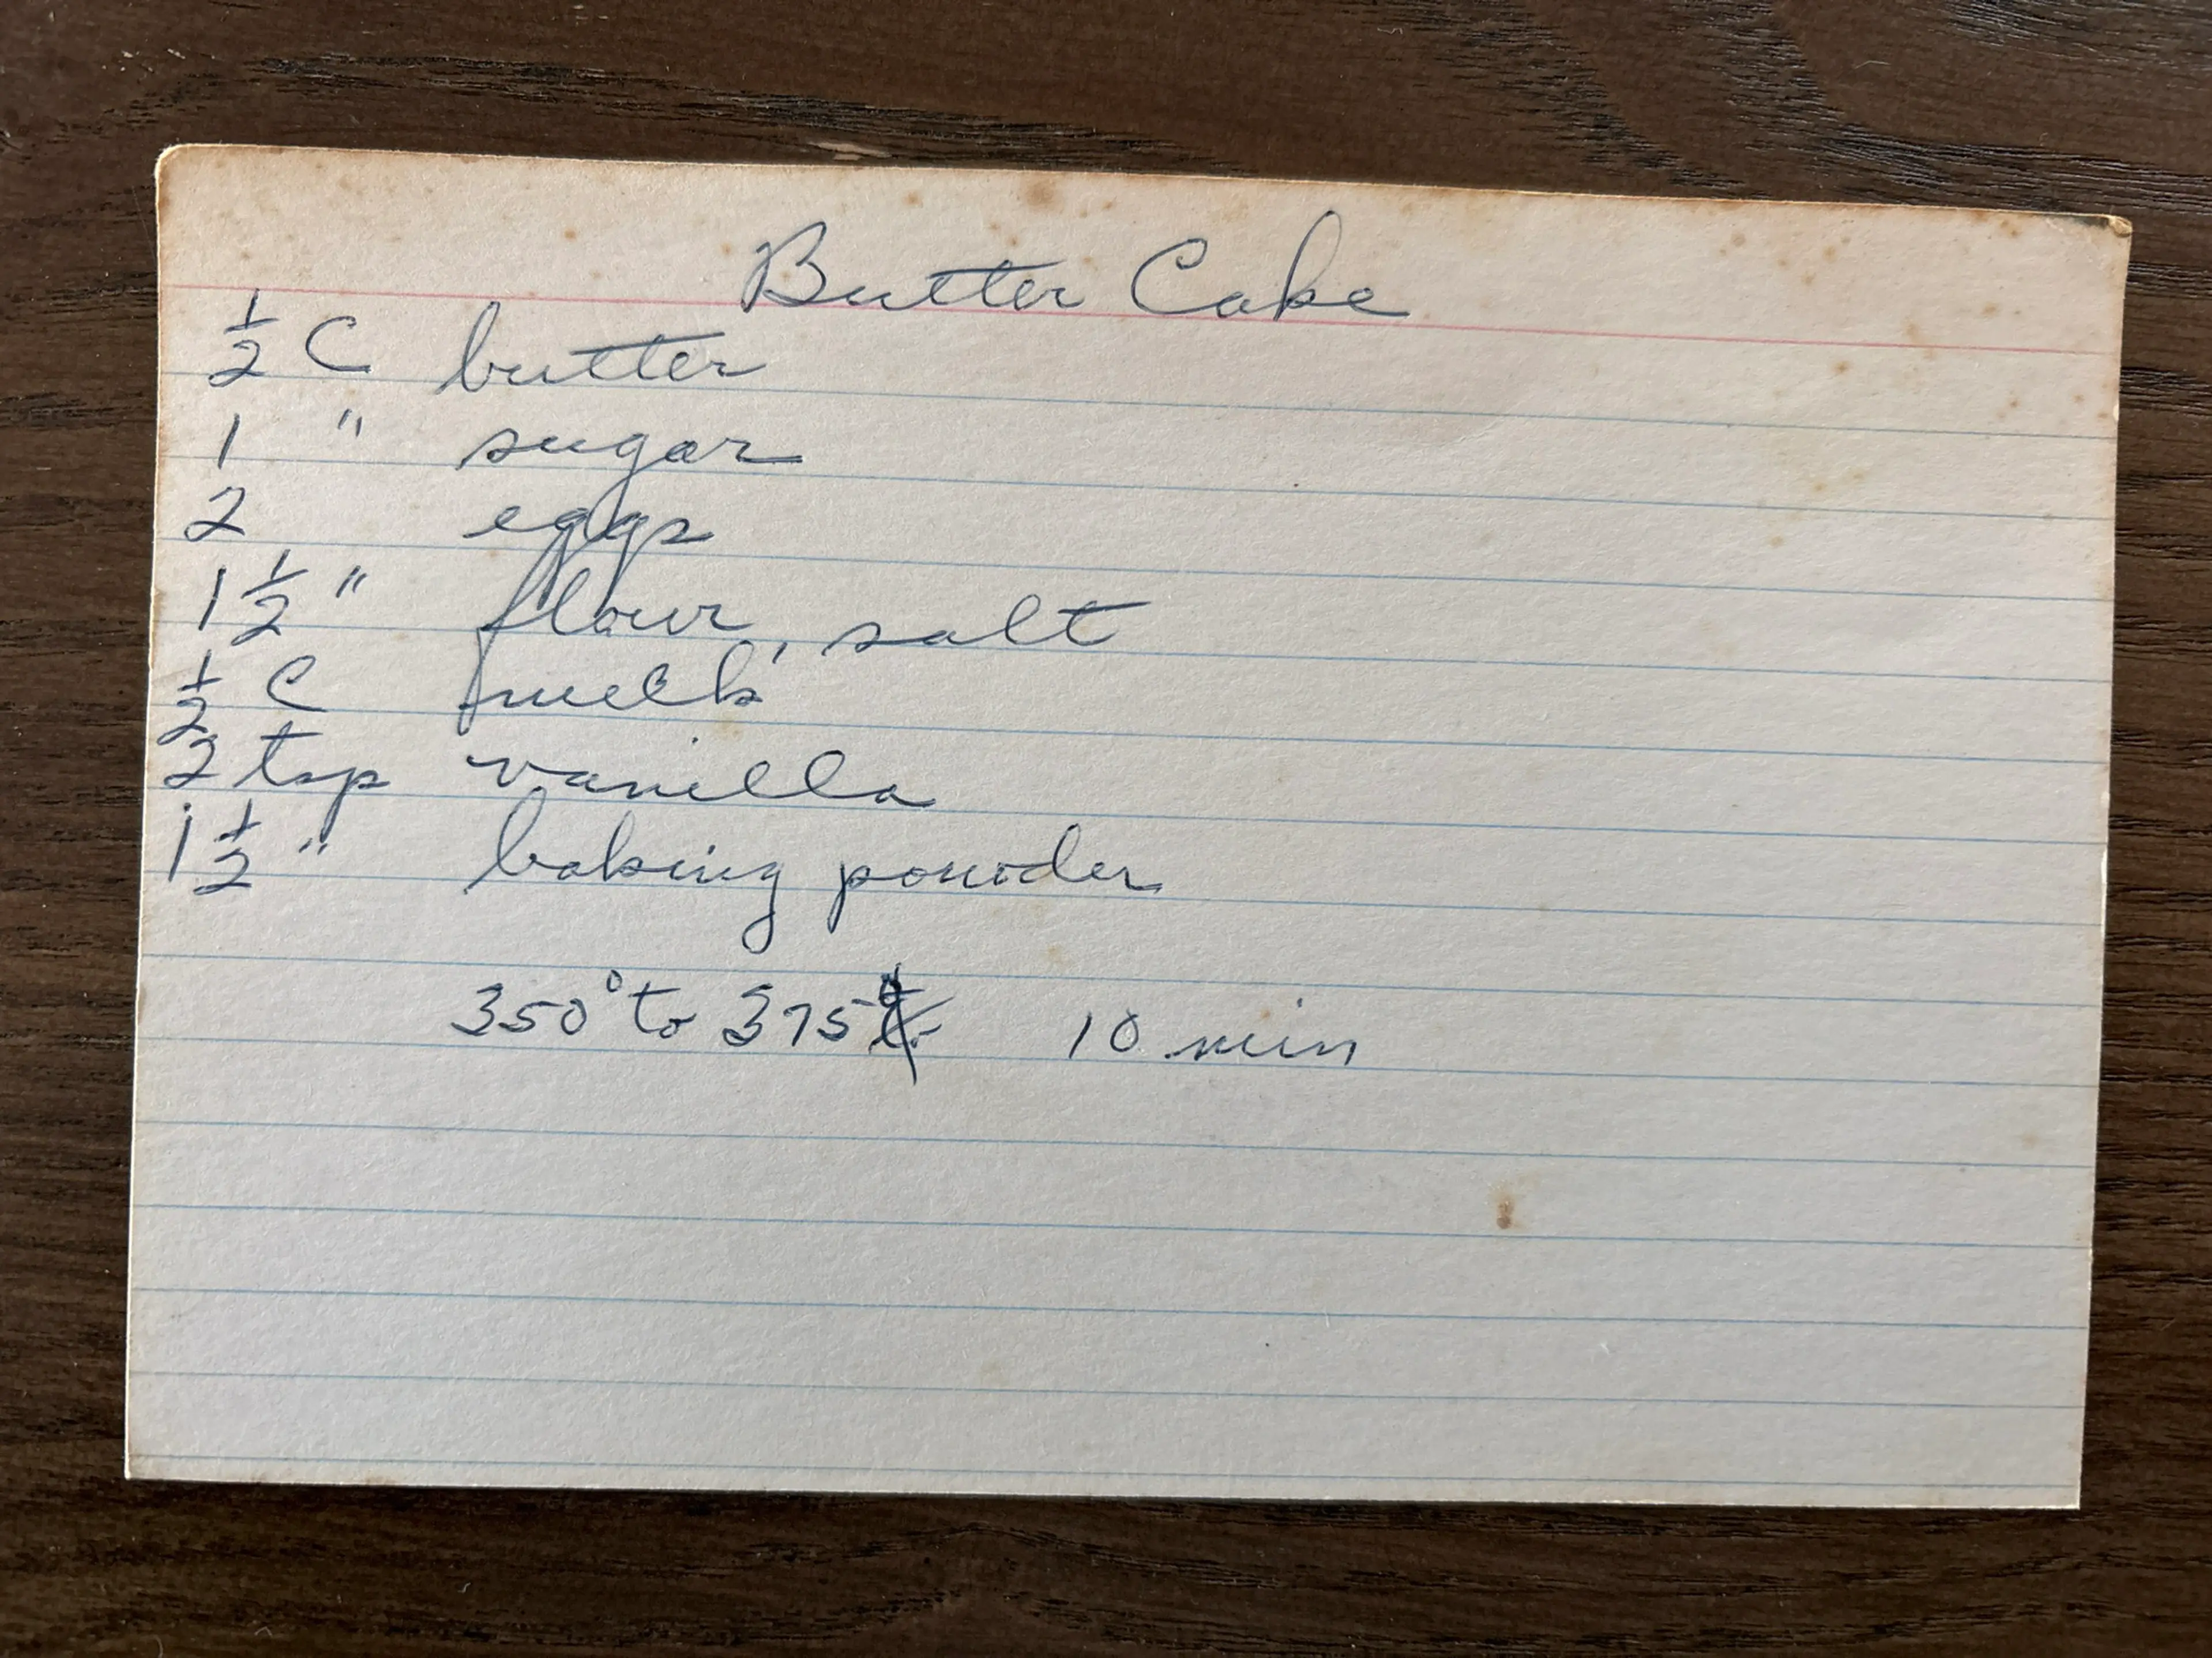 Butter Cake
½ C butter
1 " sugar
2 eggs
1½ " flour, salt
½ C milk
2 tsp vanilla
1½ " baking powder
350° to 375° 10 min